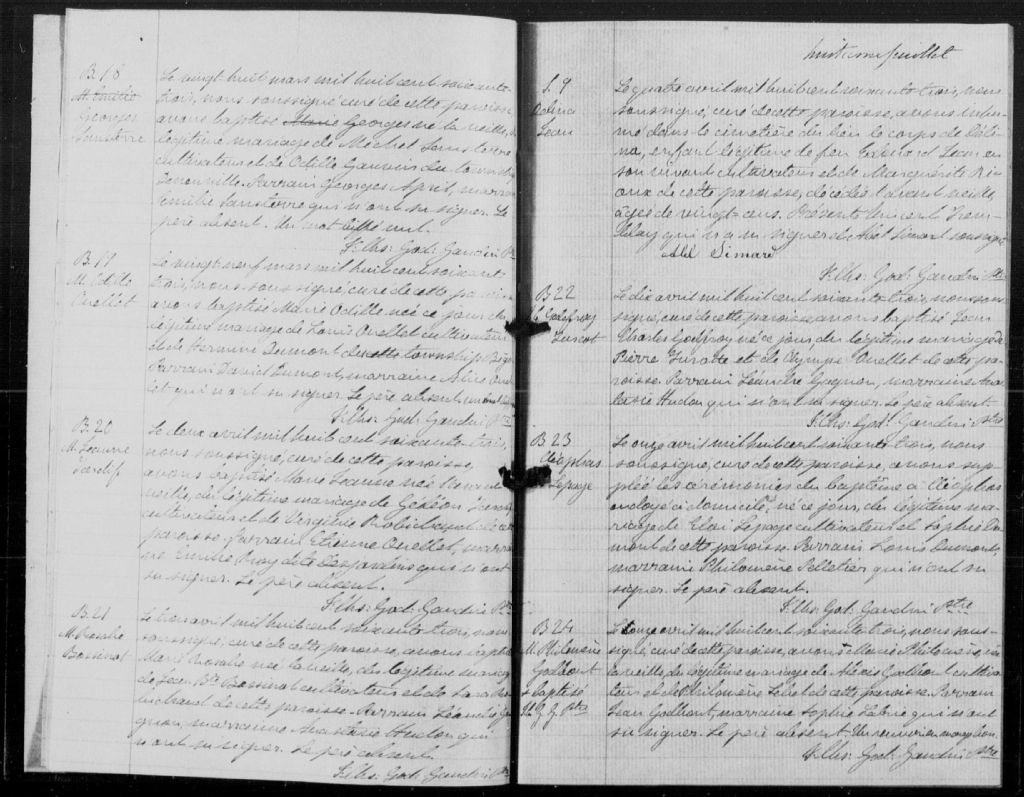 B 18
M. Emélie
Georges
Lansterre
Le vingt huit mars mil huit cent soixante
trois, nous soussigné curé de cette paroisse
avons baptisé Marie Georges né la veille, du
légitime mariage de Michel Lansterre
cultivateur et de Odille Gauvin du township
Parrain Georges April, marraine
Emilie Lansterre qui n'ont su signer. Le
père absent. Un mot biffé nul.
F. Chs: God: Gaudin Ptre
B 19
M. Odile
Ouellet
Le vingt neuf mars mil huit cent soixante
trois, nous soussigné, curé de cette paroisse
avons baptisé Marie Odille née ce jour du
légitime mariage de Louis Ouellet cultivateur
et de Hermine Dumont de cette township
Parrain David Dumont, marraine Alice Ouel
let qui n'ont su signer. Le père absent
F. Chs: God: Gaudin Ptre
B. 20
M. Jeanne
Le deux avril mil huit cent soixante trois,
nous soussigné, curé de cette paroisse,
avons baptisé Marie Jeanne née l'avant
veille, du légitime mariage de Gédéon
cultivateur et de Virginie Robichaud de cette
paroisse. Parrain Etienne Ouellet, marrai
ne Emilie Roy dit Desjardins qui n'ont
su signer. Le père absent.
F. Chs: God: Gaudin Ptre
B. 21
M. Rosalie
Bossinot
Le trois avril mil huit cent soixante trois, nous
soussigné, curé de cette paroisse, avons baptisé
Marie Rosalie née la veille, du légitime mariage
de Jean Bte Bossinot cultivateur et de Sara Ro
bichaud de cette paroisse. Parrain Léandre Ga
gnon, marraine Anastasie Hudon qui
n'ont su signer. Le père absent.
F. Chs: God: Gaudin Ptre
huitième feuillet
S. 9
Délina
Jean
Le quatre avril mil huit cent soixante trois, nous
soussigné, curé de cette paroisse, avons inhu
mé dans le cimetière du lieu le corps de Déli
na, enfant légitime de feu Edouard Jean en
son vivant cultivateur et de Marguerite Ri
oux de cette paroisse, décédée l'avant veille,
âgée de vingt ans. Présents Vincent Trem
blay qui n'a su signer et Abel Simard soussigné
Abel Simard
F. Chs: God: Gaudin Ptre
B 22
C. Godefroy
Turcot
Le dix avril mil huit cent soixante trois, nous sous
signé, curé de cette paroisse avons baptisé Jean
Charles Godefroy né ce jour du légitime mariage de
Pierre Turotte et de Olympe Ouellet de cette pa
roisse. Parrain Léandre Gagnon, marraine Anas
tasie Hudon qui n'ont su signer. Le père absent.
F. Chs: God: Gaudin Ptre
B 23
Cléophas
Lepage
Le onze avril mil huit cent soixante trois, nous
soussigné, curé de cette paroisse, avons sup
pléé les cérémonies du baptême à Cléophas
ondoyé à domicile, né ce jour, du légitime ma
riage de Eloi Lepage cultivateur et Sophie Du
mont de cette paroisse. Parrain Louis Dumont,
marraine Philomène Pelletier qui n'ont su
signer. Le père absent.
F. Chs: God: Gaudin Ptre
B 24
M. Philomène
Galbont
+ baptisé
Le onze avril mil huit cent soixante trois, nous sous
signé, curé de cette paroisse, avons + Marie Philomène, née
la veille du légitime mariage de Alexis Galbont cultiva
teur et de Philomène Lebel de cette paroisse. Parrain
Jean Galbont, marraine Sophie Labrie qui n'ont
su signer. Le père absent. Un renvoi en marge bon.
F. Chs: God: Gaudin Ptre